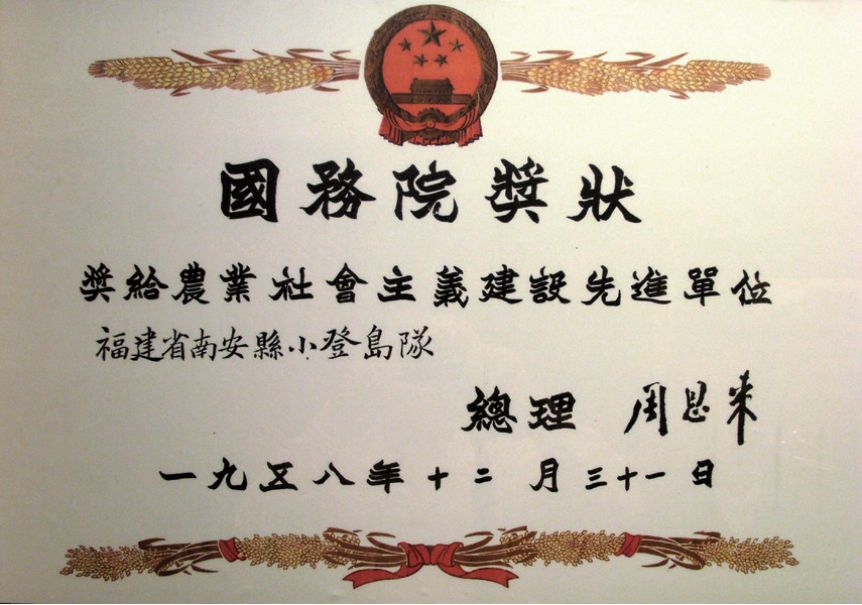 國務院獎狀
獎給農業社會主義建設先進單位
福建省南安縣小登島隊
總理 周恩来
一九五八年十二月三十一日